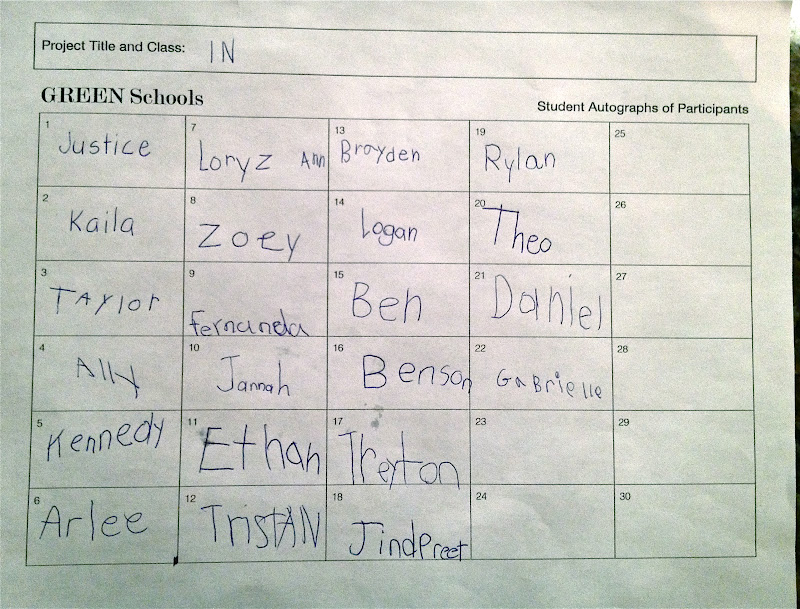 Project Title and Class: IN
GREEN Schools
Student Autographs of Participants
1 Justice
7 Loryz Ann
13 Brayden
19 Rylan
25
2 Kaila
8 Zoey
14 Logan
20 Theo
26
3 TAYlor
9 fernanda
15 Ben
21 Daniel
27
4 Ally
10 Jannah
16 Benson
22 GaBrielle
28
5 Kennedy
11 Ethan
17 Treyton
23
29
6 Arlee
12 TristAN
18 JindPreet
24
30